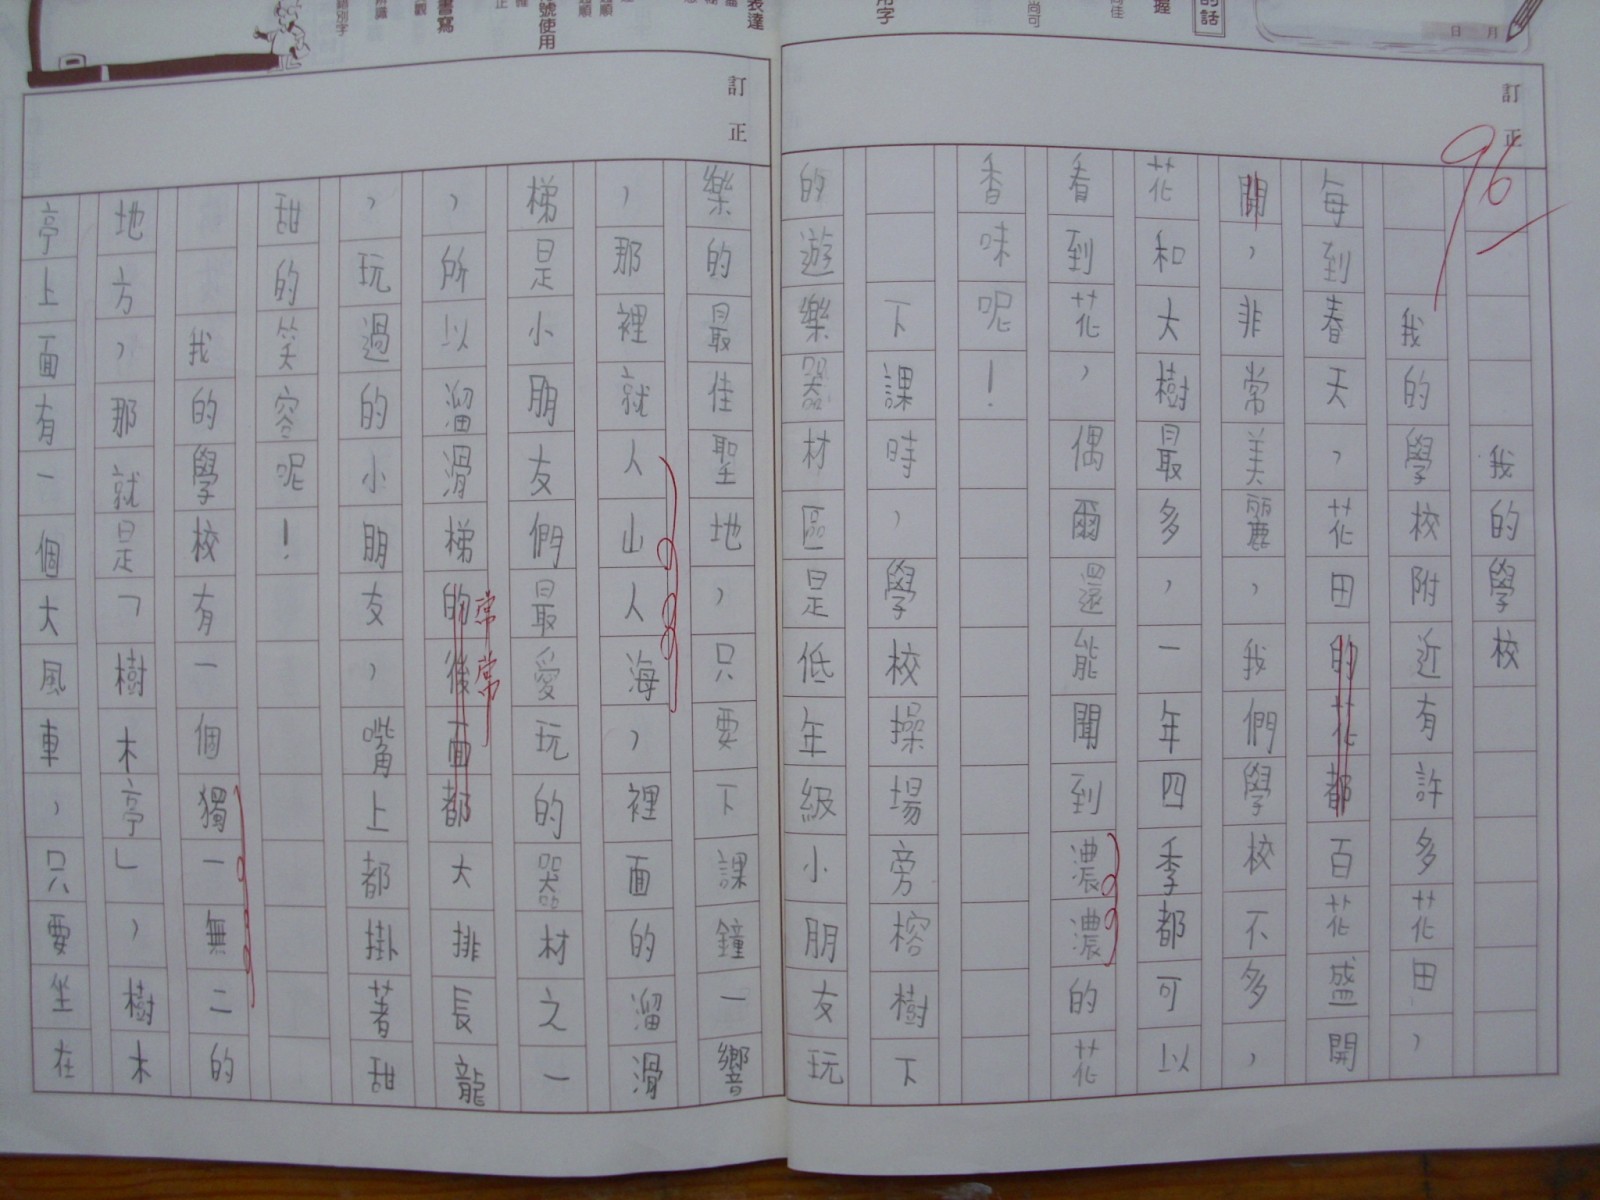 的話
日 月
握
尚佳
尚可
用字
訂正
96
我的學校
我的學校附近有許多花田，
每到春天，花田的花都百花盛開
開，非常美麗，我們學校不多，
花和大樹最多，一年四季都可以
看到花，偶爾還能聞到濃濃的花
香味呢！
下課時，學校操場旁榕樹下
的遊樂器材區是低年級小朋友玩
表達
號使用
書寫
錯別字
訂正
樂的最佳聖地，只要下課鐘一響
，那裡就人山人海，裡面的溜滑
梯是小朋友們最愛玩的器材之一
常常
，所以溜滑梯的後面都大排長龍
，玩過的小朋友，嘴上都掛著甜
甜的笑容呢！
我的學校有一個獨一無二的
地方，那就是「樹木亭」，樹木
亭上面有一個大風車，只要坐在